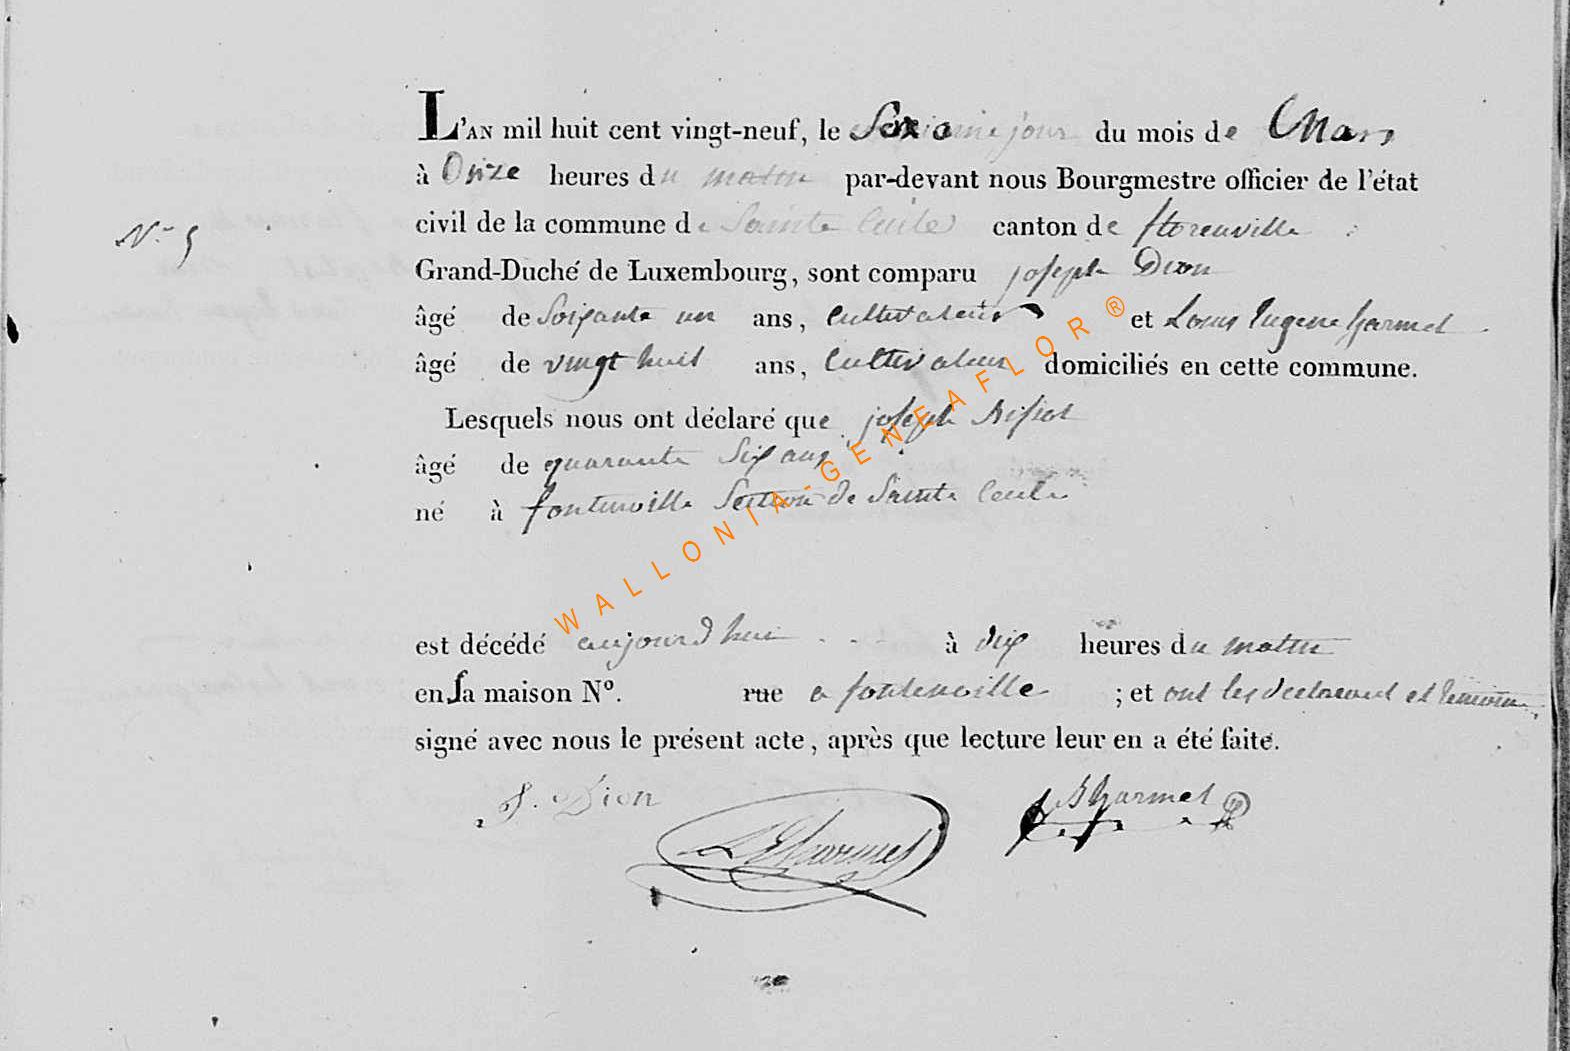 L'AN mil huit cent vingt-neuf, le jour du mois de Mars
à Onze heures du matin par-devant nous Bourgmestre officier de l'état
N° 5 civil de la commune de Sainte Cecile canton de florenville
Grand-Duché de Luxembourg, sont comparu joseph Dion
âgé de Soixante un ans, Cultivateur et Louis Eugene harmel
âgé de vingt huit ans, Cultivateur domiciliés en cette commune.
Lesquels nous ont déclaré que joseph
âgé de quarante Six ans
né à fontenoille Section de Sainte Cecile
est décédé aujourd'hui à dix heures du matin
en Sa maison N°. rue a fontenoille ; et ont les declarant et temoins
signé avec nous le présent acte, après que lecture leur en a été faite.
J. Dion
L E harmel
B harmel
WALLONIA-GENEAFLOR®